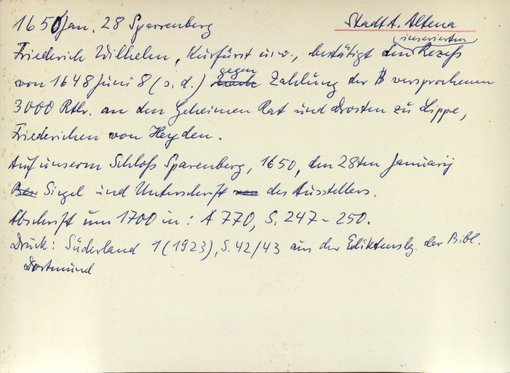 1650 Jan. 28 Sparrenberg
Stadt A. Altena
Friederich Wilhelm, Kurfürst u.s.w., bestätigt den inserierten Rezeß
von 1648 Juni 8 (s.d.) gegen Zahlung der versprochenen
3000 Rtlr. an den Geheimen Rat und Drosten zu Lippe,
Friederichen von Heyden.
Auf unserm Schloß Sparenberg, 1650, den 28ten Januarij
Siegel und Unterschrift des Ausstellers.
Abschrift um 1700 in: A 770, S. 247-250.
Druck: Süderland 1 (1923), S. 42/43 aus der Ediktenslg. der Bibl.
Dortmund